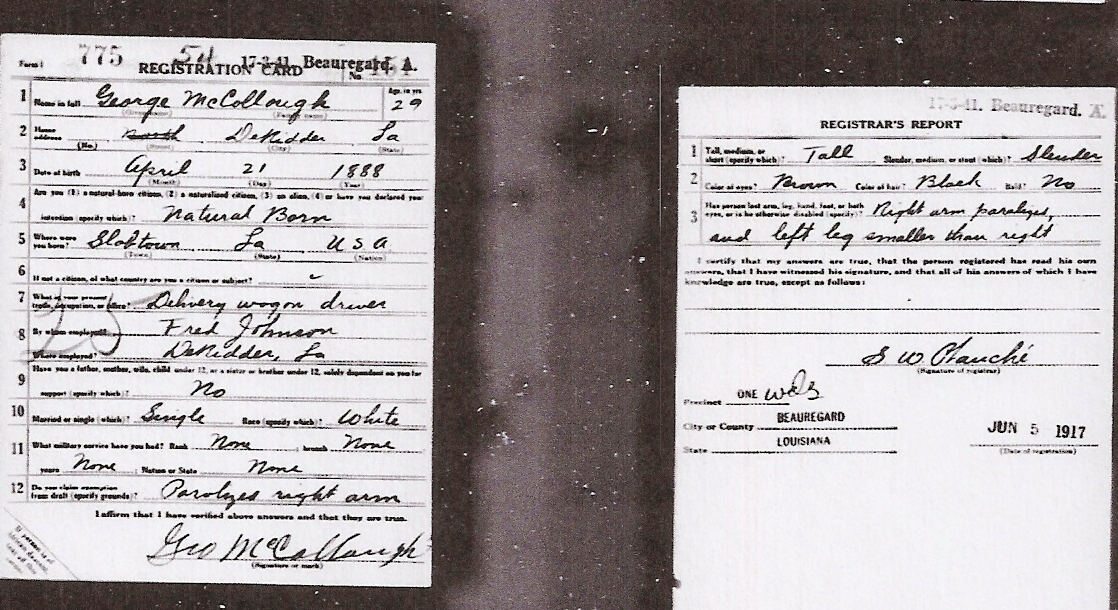 Form 1 775 54 17-3-41. Beauregard. A.
REGISTRATION CARD No.
1 Name in full George McCollough Age, in yrs. 29
(Given name) (Family name)
2 Home address DeRidder La
(No.) (Street) (City) (State)
3 Date of birth April 21 1888
(Month) (Day) (Year)
Are you (1) a natural-born citizen, (2) a naturalized citizen, (3) an alien, (4) or have you declared your
4 intention (specify which)? Natural Born
5 Where were you born? Slabtown La USA
(Town) (State) (Nation)
6 If not a citizen, of what country are you a citizen or subject?
7 What is your present trade, occupation, or office? Delivery wagon driver
8 By whom employed? Fred Johnson
Where employed? DeRidder, La
Have you a father, mother, wife, child under 12, or a sister or brother under 12, solely dependent on you for
9 support (specify which)? No
10 Married or single (which)? Single Race (specify which)? White
11 What military service have you had? Rank None ; branch None
years None ; Nation or State None
12 Do you claim exemption from draft (specify grounds)? Paralyzes right arm
I affirm that I have verified above answers and that they are true.
Geo McCollough
(Signature or mark)
17-3-41. Beauregard. A.
REGISTRAR'S REPORT
1 Tall, medium, or short (specify which)? Tall Slender, medium, or stout (which)? Slender
2 Color of eyes? Brown Color of hair? Black Bald? No
3 Has person lost arm, leg, hand, foot, or both eyes, or is he otherwise disabled (specify)? Right arm paralyzes,
and left leg smaller than right
I certify that my answers are true, that the person registered has read his own
answers, that I have witnessed his signature, and that all of his answers of which I have
knowledge are true, except as follows:
(Signature of registrar)
Precinct ONE
City or County BEAUREGARD
State LOUISIANA
JUN 5 1917
(Date of registration)